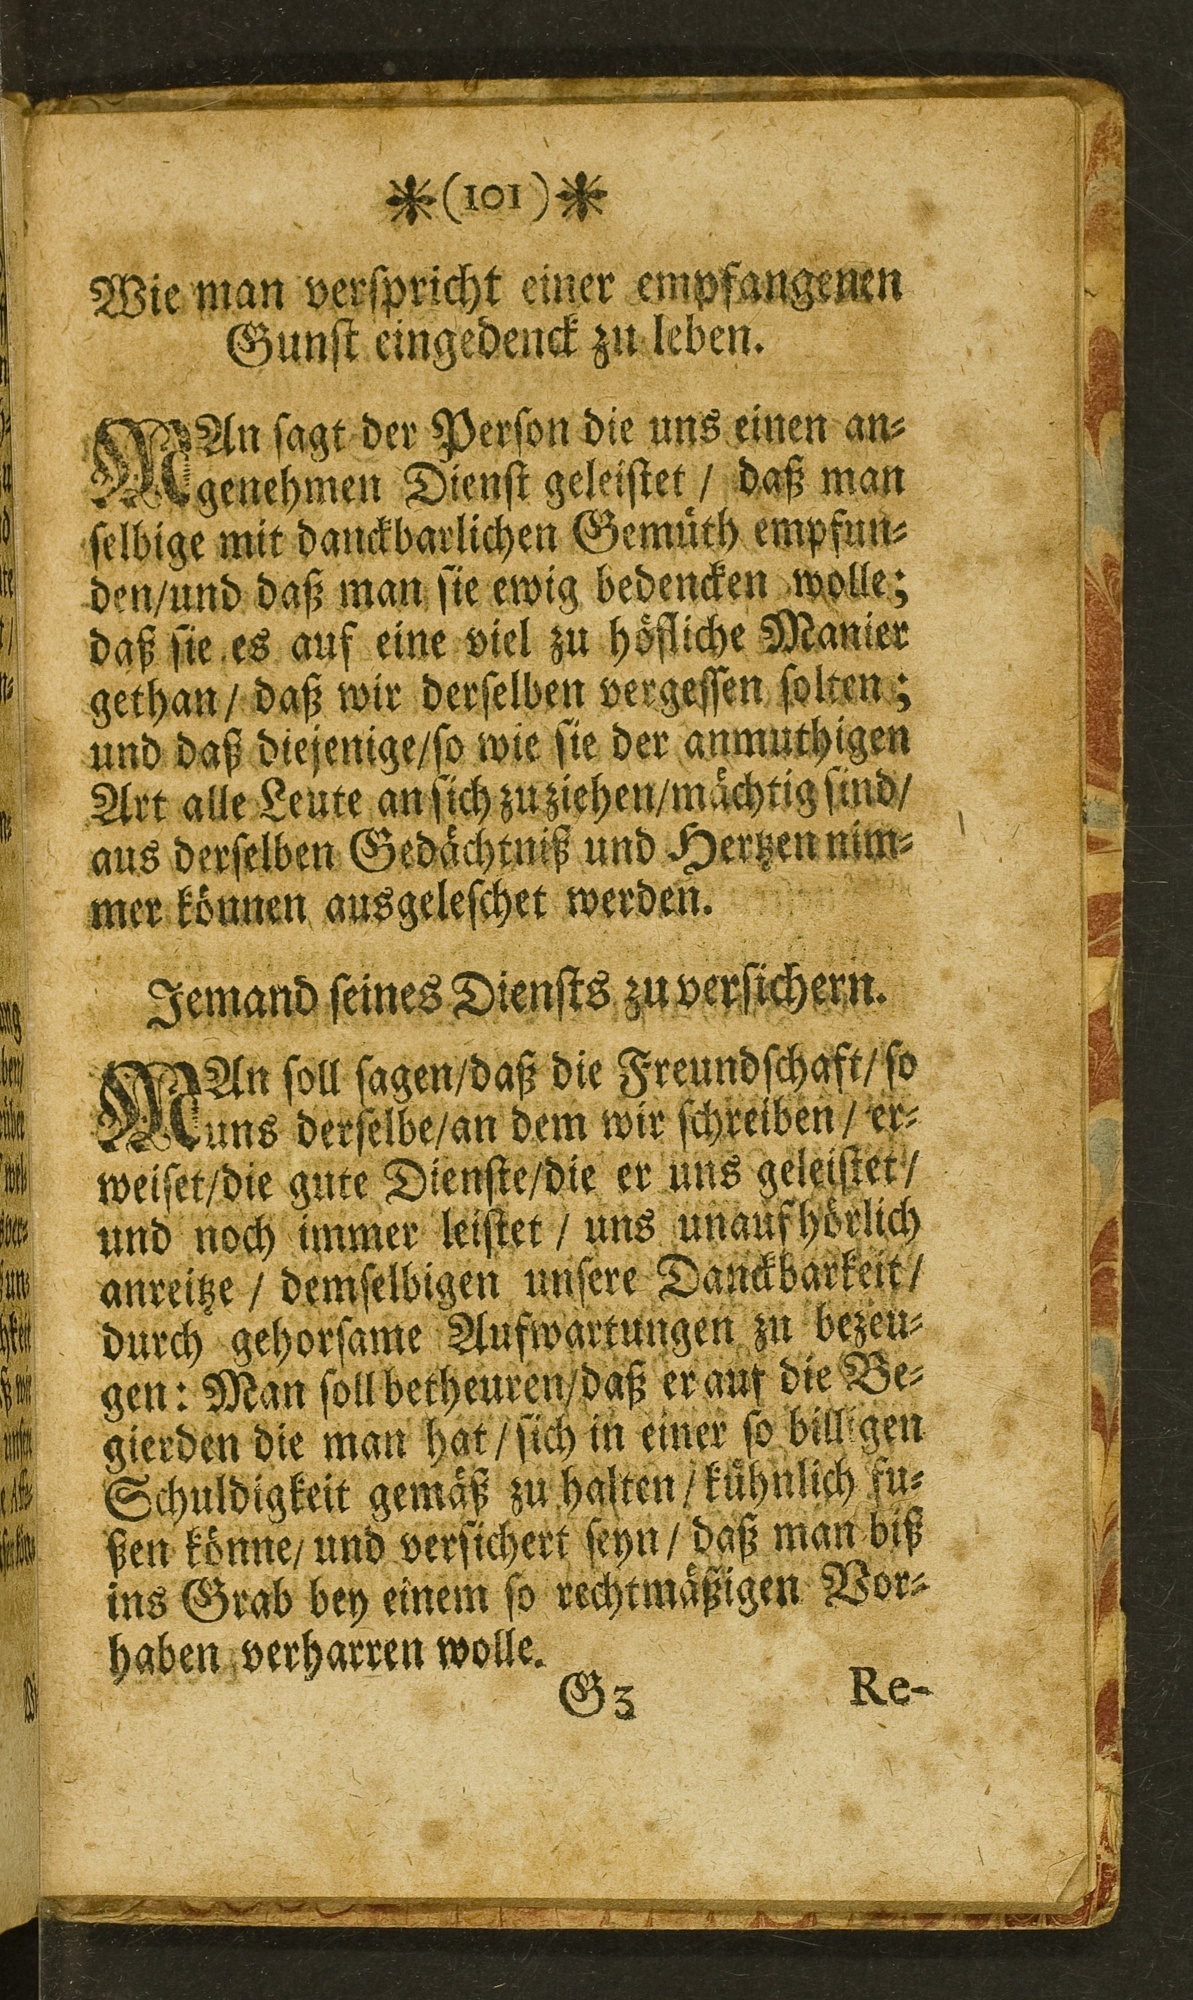 (101)
Wie man verspricht einer empfangenen
Gunst eingedenck zu leben.
MAn sagt der Person die uns einen an-
genehmen Dienst geleistet / daß man
selbige mit danckbarlichen Gemüth empfun-
den/und daß man sie ewig bedencken wolle;
daß sie es auf eine viel zu höfliche Manier
gethan / daß wir derselben vergessen solten;
und daß diejenige/so wie sie der anmuthigen
Art alle Leute an sich zu ziehen/mächtig sind/
aus derselben Gedächtniß und Hertzen nim-
mer können ausgeleschet werden.
Jemand seines Diensts zu versichern.
MAn soll sagen/daß die Freundschaft/so
uns derselbe/an dem wir schreiben / er-
weiset/die gute Dienste/die er uns geleistet/
und noch immer leistet / uns unaufhörlich
anreitze / demselbigen unsere Danckbarkeit/
durch gehorsame Aufwartungen zu bezeu-
gen: Man soll betheuren/daß er auf die Be-
gierden die man hat / sich in einer so billigen
Schuldigkeit gemäß zu halten / kühnlich fu-
ßen könne/ und versichert seyn / daß man biß
ins Grab bey einem so rechtmäßigen Vor-
haben verharren wolle.
G3 Re-